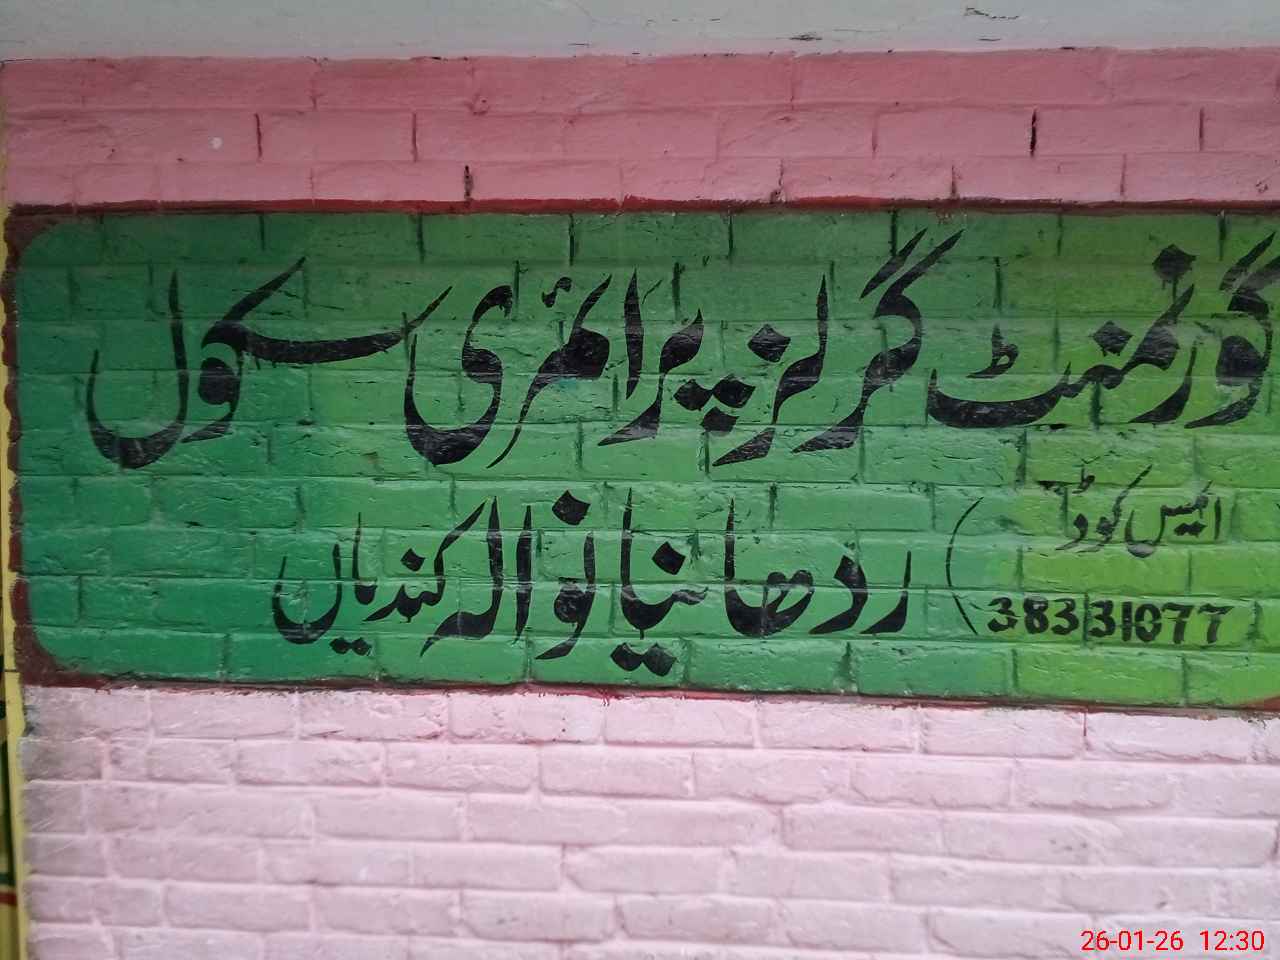 گورنمنٹ گرلز پرائمری سکول
ایمس کوڈ
38331077
ردھانیانوالہ کندیاں
26-01-26 12:30